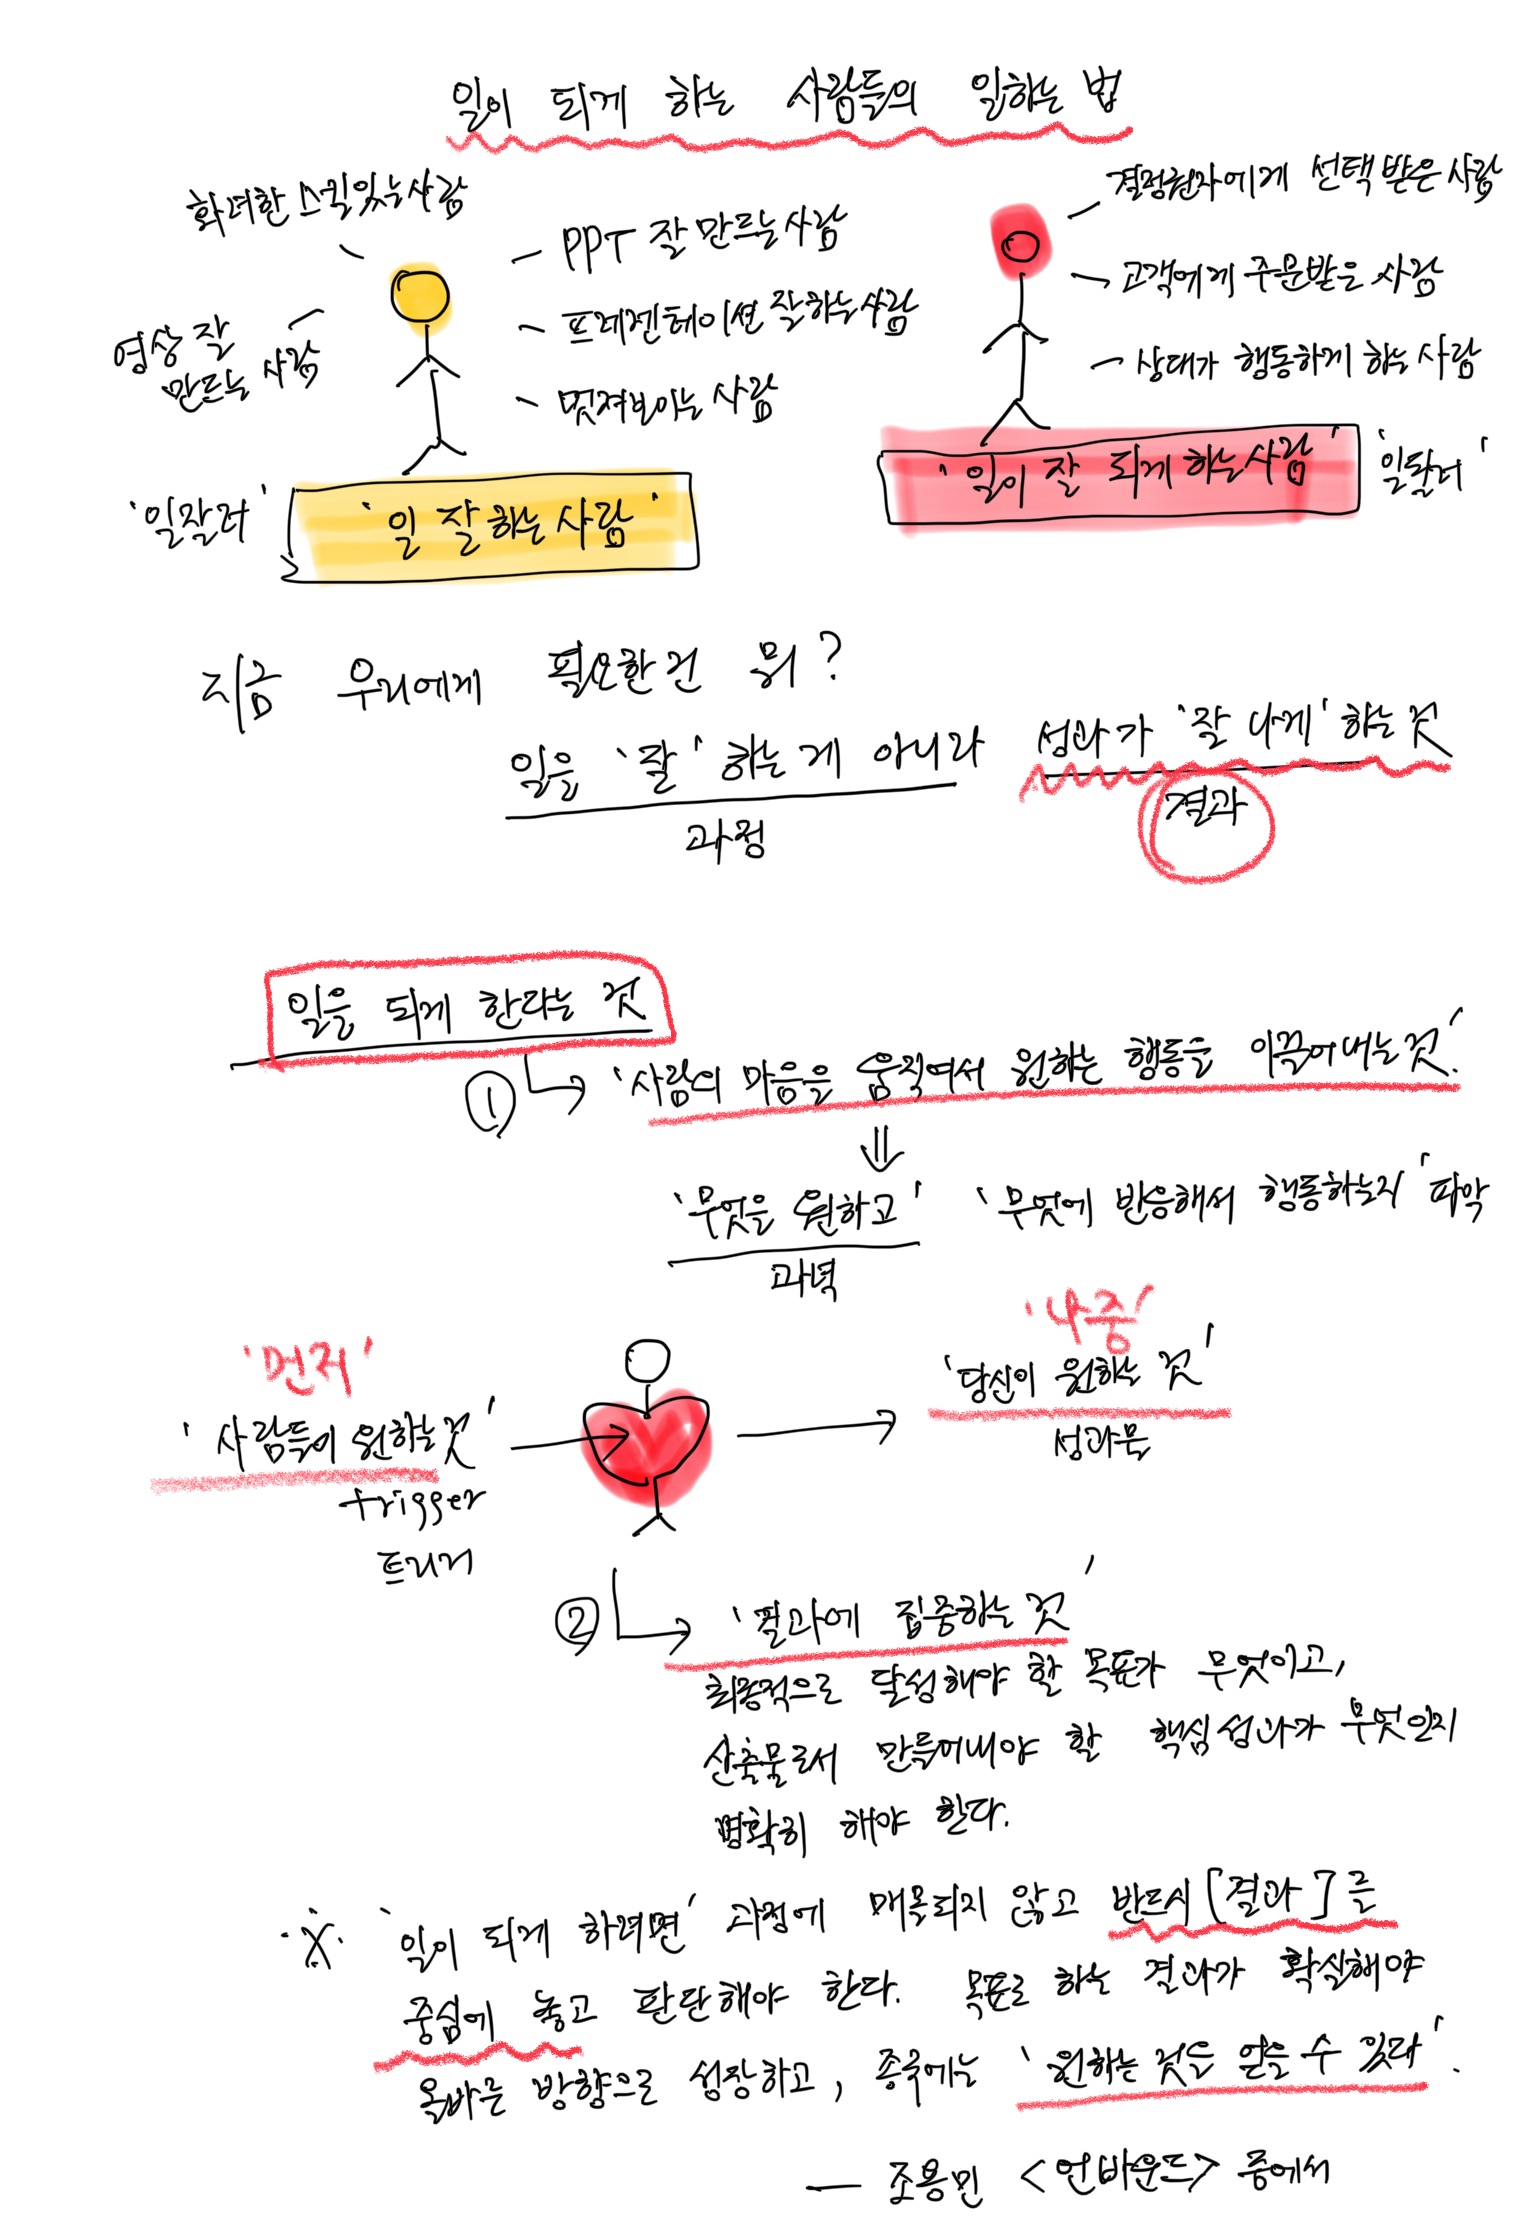 일이 되게 하는 사람들의 일하는 법
화려한 스킬있는 사람
영상 잘
만드는 사람
PPT 잘 만드는 사람
프레젠테이션 잘하는 사람
멋져보이는 사람
'일잘러'
'일 잘하는 사람'
결정권자에게 선택 받은 사람
고객에게 주문받은 사람
상대가 행동하게 하는 사람
'일이 잘 되게 하는 사람'
지금 우리에게 필요한 건 뭐?
일을 '잘' 하는 게 아니라 성과가 '잘 나게' 하는 것
과정
결과
일을 되게 한다는 것
① '사람의 마음을 움직여서 원하는 행동을 이끌어내는 것.'
'무엇을 원하고' '무엇에 반응해서 행동하는지' 파악
과녁
'먼저'
'사람들이 원하는 것'
trigger
트리거
'나중'
'당신이 원하는 것'
성과물
② '결과에 집중하는 것'
최종적으로 달성해야 할 목표가 무엇이고,
산출물로서 만들어내야 할 핵심성과가 무엇인지
명확히 해야 한다.
※ '일이 되게 하려면' 과정에 매몰되지 않고 반드시 [결과]를
중심에 놓고 판단해야 한다. 목표로 하는 결과가 확실해야
올바른 방향으로 성장하고, 종국에는 '원하는 것을 얻을 수 있다'.
— 조용민 <언바운드> 중에서